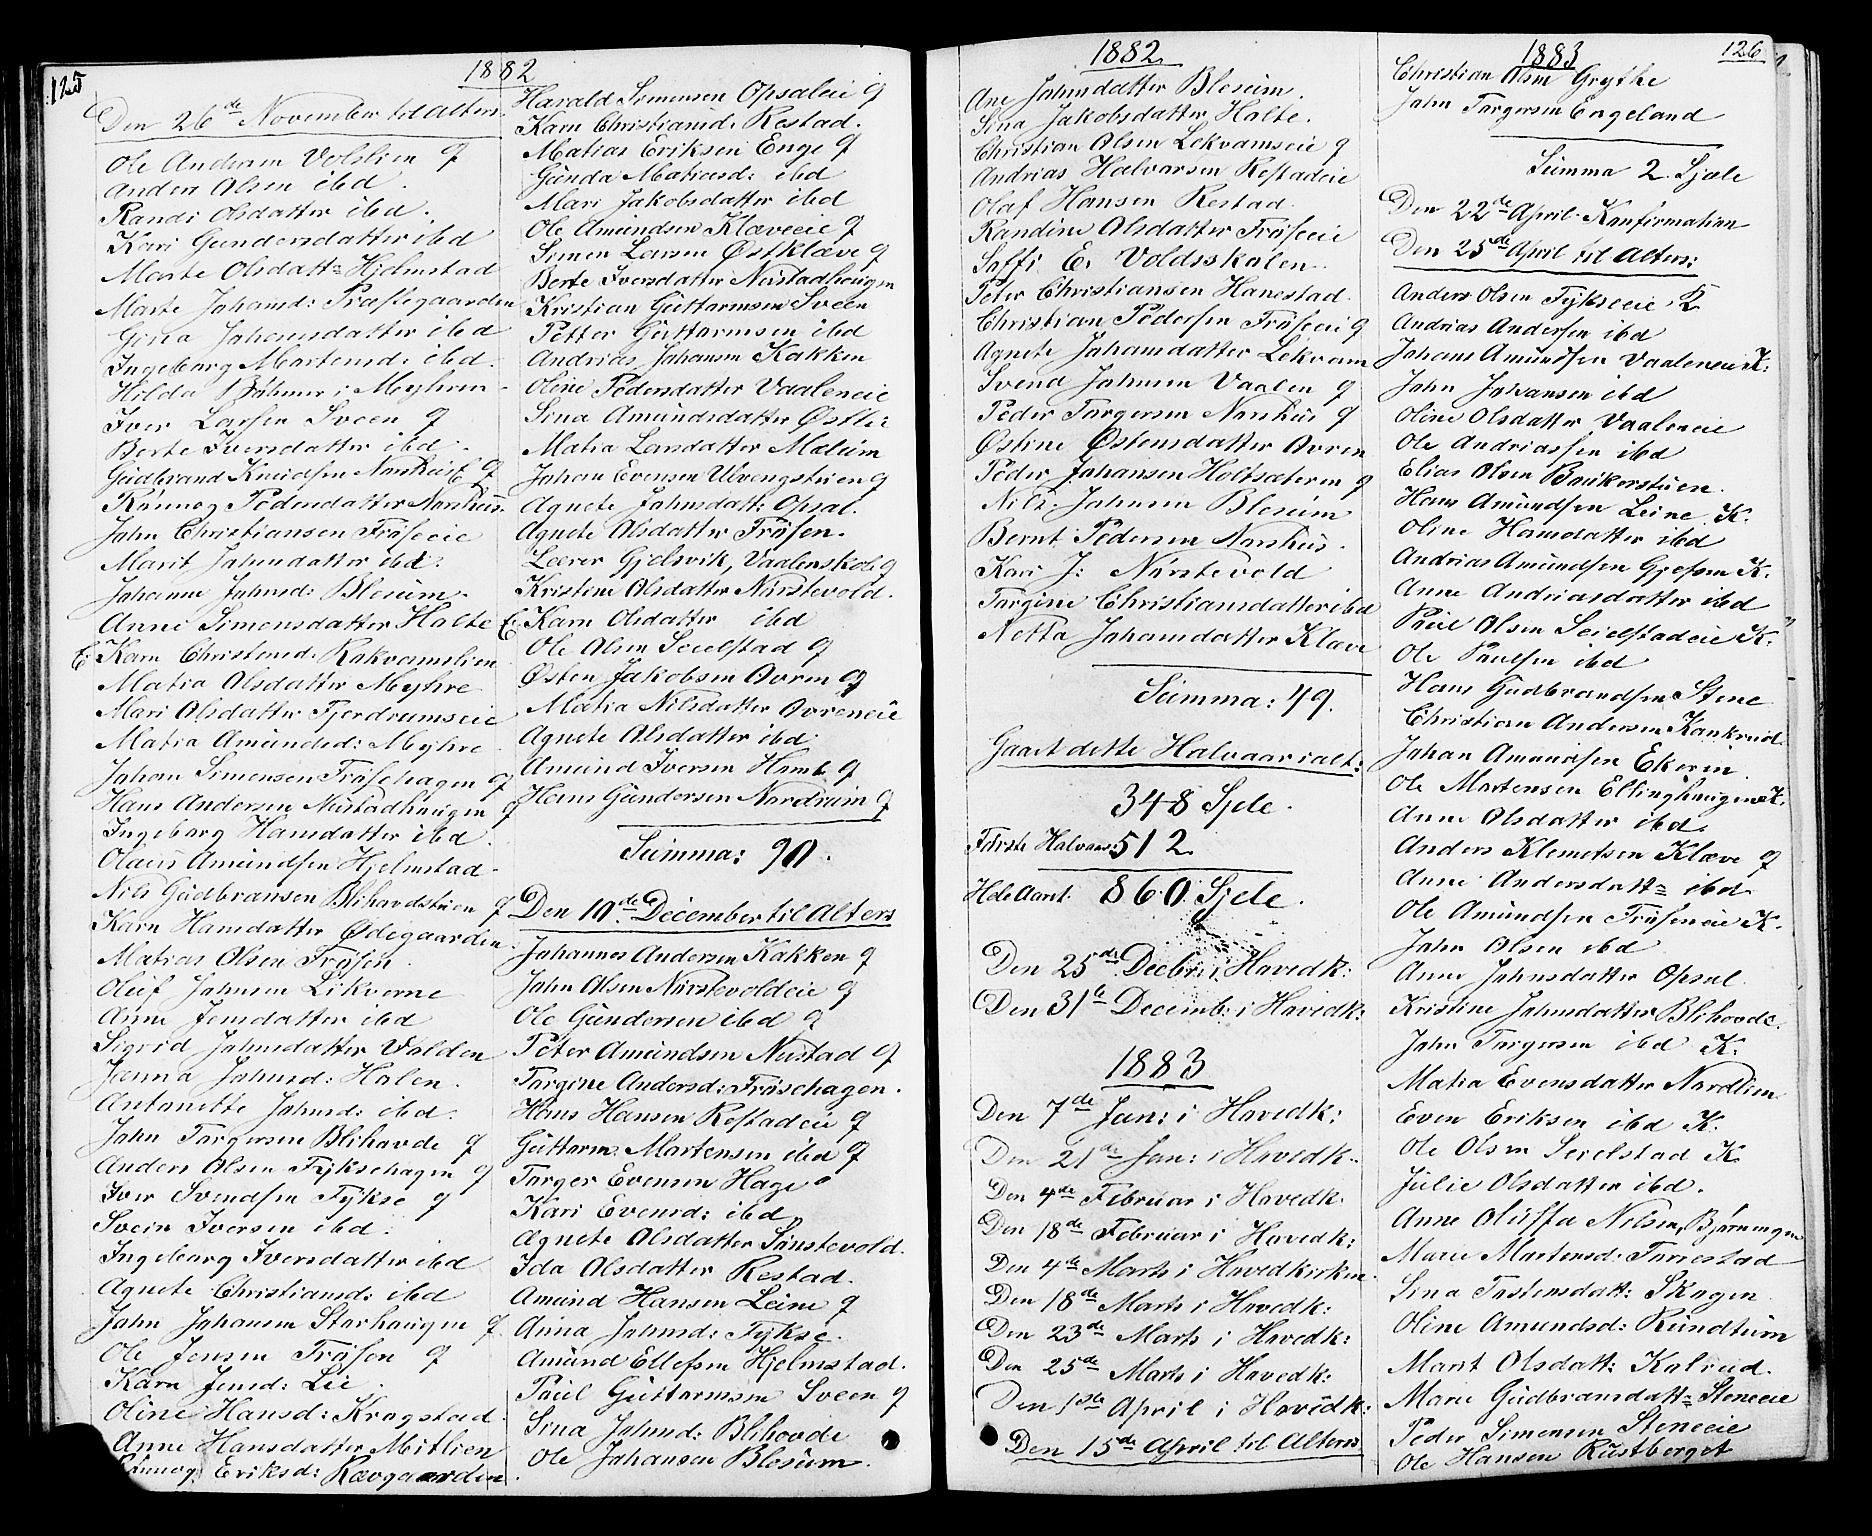 125
1882
Den 26de November til Alters.
Ole Andersen Volslien g
Anders Olsen ibd.
Randi Olsdatter ibd.
Kari Gundersdatter ibd
Marte Olsdatt= Hjelmstad
Marte Johansd: Præstegaarden
Gina Johansdatter ibd
Ingeborg Martensd: ibd.
Hilda Böhmer i Myhren.
Iver Larsen Sveen g
Berte Iversdatter ibd.
Gudbrand Knudsen Narshus E g
Rönnog Pedersdatter Narshus.
John Christiansen Fröseeie
Marit Johnsdatter ibd.
Johanne Johnsd: Blesum.
Anne Simensdatter Holte
E Karn Christensd: Rakvamslien
Matia Olsdatter Myhre
Mari Olsdatter Fjerdrumseie
Matia Amundsd: Myhre
Johan Simensen Fröshagen g
Hans Andersen Nustadhaugen g
Ingeborg Hansdatter ibd.
Olaus Amundsen Hjelmstad
Nils Gudbransen Blihovdstuen g
Karn Hansdatter Ødegaarden
Matias Olsen Frösen
Oluf Johnsen Likverne
Anne Jensdatter ibd
Sigrid Johnsdatter Volden
Jenna Johnsd: Holen.
Antonette Johnsd: ibd.
John Torgersen Blihovde g
Anders Olsen Fykschagen g
Iver Svendsen Fykse g
Svein Iversen ibd.
Ingeborg Iversdatter ibd
Agnete Christiansd: ibd
John Johansen Storhaugen g
Ole Jensen Frösen g
Karn Jensd: Lie.
Oline Hansd: Kragstad.
Anne Hansdatter Mitlien
Rönnog Eriksd: Rævgaarden
Harald Simensen Opsaleie g
Karn Christiansd: Restad.
Matias Eriksen Enge g
Gunda Matiasd: ibd
Mari Jakobsdatter ibd
Ole Amundsen Klæveeie g
Simen Larsen Østklæve g
Berte Iversdatter Nustadhaugen
Kristian Guttormsen Sveen
Petter Guttormsen ibd
Andrias Johansen Kakken
Oline Pedersdatter Vaaleneie
Sina Amundsdatter Østlie
Matia Larsdatter Melum
Johan Evensen Ulvengstuen g
Agnete Johnsdatt: Opsal.
Agnete Olsdatter Frösen.
Lærer Gjelsvik, Vaalenskole g
Kristene Olsdatter Nörstevold.
E Karn Olsdatter ibd
Ole Olsen Seielstad g
Østen Jakobsen Ovren g
Matia Nilsdatter Ovreneie
Agnete Olsdatter ibd.
Amund Iversen Homb. g
Hans Gundersen Nordrum g
Summa: 90.
Den 10de December til Alters
Johannes Andersen Kakken g
John Olsen Nörstevoldeie g
Ole Gundersen ibd g
Peter Amundsen Nustad g
Torgine Andersd: Fröschagen.
Hans Hansen Restadeie g
Guttorm Martensen ibd g
Torger Evensen Hage
Kari Evensd: ibd
Agnete Olsdatter Sönstevold.
Ida Olsdatter Restad.
Amund Hansen Leine g
Anna Johnsd: Fykse.
Amund Ellefsen Hjelmstad.
Paul Guttormsen Sveen g
Sina Johnsd: Blihovde
Ole Johansen Blesum.
1882
Ane Johnsdatter Blesum.
Sina Jakobsdatter Holte.
Christian Olsen Lekvamseie g
Andrias Halvorsen Restadeie
Olaf Hansen Restad.
Randine Olsdatter Fröseeie
Soffi E. Voldsskolen.
Peter Christiansen Hanestad.
Christian Pedersen Fröseeie g
Agnete Johansdatter Lekvam
Svend Johnsen Vaalen g
Peder Torgersen Norshus g
Østine Østensdatter Ovren
Peder Johansen Holtsæteren g
Nils Johnsen Blesum
Bernt Pedersen Norshus.
Kari J: Nörstevold
Torgine Christiansdatter ibd
Netta Johansdatter Klæve
Summa: 49.
Gaaet dette Halvaar ialt:
348 Sjele.
Første Halvaar: 512
Hele Aaret. 860 Sjele.
Den 25de Decbr: i Hovedk:
Den 31te Decemb: i Hovedk:
1883
Den 7de Jan: i Hovedk:
Den 21de Jan: i Hovedk.
Den 4de Februar i Hovedk.
Den 18de Februar i Hovedk:
Den 4de Marts i Hovedkirken.
Den 18de Marts i Hovedk:
Den 23de Marts i Hovedk:
Den 25de Marts i Hovedk:
Den 1ste April i Hovedk:
Den 15de April til Alters
1883
126
Christian Olsen Grythe
John Torgersen Engeland
Summa 2. Sjæle
Den 22de April. Konfirmation
Den 25de April til Alters:
Anders Olsen Fykseeie, K
Andrias Andersen ibd
Johans Amundsen Vaaleneie K.
John Johansen ibd
Oline Olsdatter Vaaleneie
Ole Andriassen ibd
Elias Olsen Baukerstuen.
Hans Amundsen Leine K.
Oline Hansdatter ibd
Andrias Amundsen Gjefsen K.
Anne Andriasdatter ibd
Paul Olsen Seielstadeie K.
Ole Paulsen ibd
Hans Gudbrandsen Stene
Christian Andersen Kankrud.
Johan Amundsen Ekern.
Ole Martensen Ellinghaugen K.
Anne Olsdatter ibd.
Anders Klemetsen Klæve g
Anne Andersdatt= ibd.
Ole Amundsen Fröseneie K.
John Olsen ibd
Anne Johnsdatter Opsal.
Kristine Johnsdatter Blihovde.
John Torgersen ibd K.
Matia Evensdatter Nordlien
Even Eriksen ibd K.
Ole Olsen Seielstad K
Julie Olsdatter ibd.
Anne Oluffa Nilsen, Bjørnengen
Marie Martensd: Torrestad
Sina Tostensdatt: Skogen
Oline Amundsd: Rundtum
Marit Olsdatt: Kalrud.
Marie Gudbransdatt= Steneeie
Peder Simensen Steneeie
Ole Hansen Rustberget